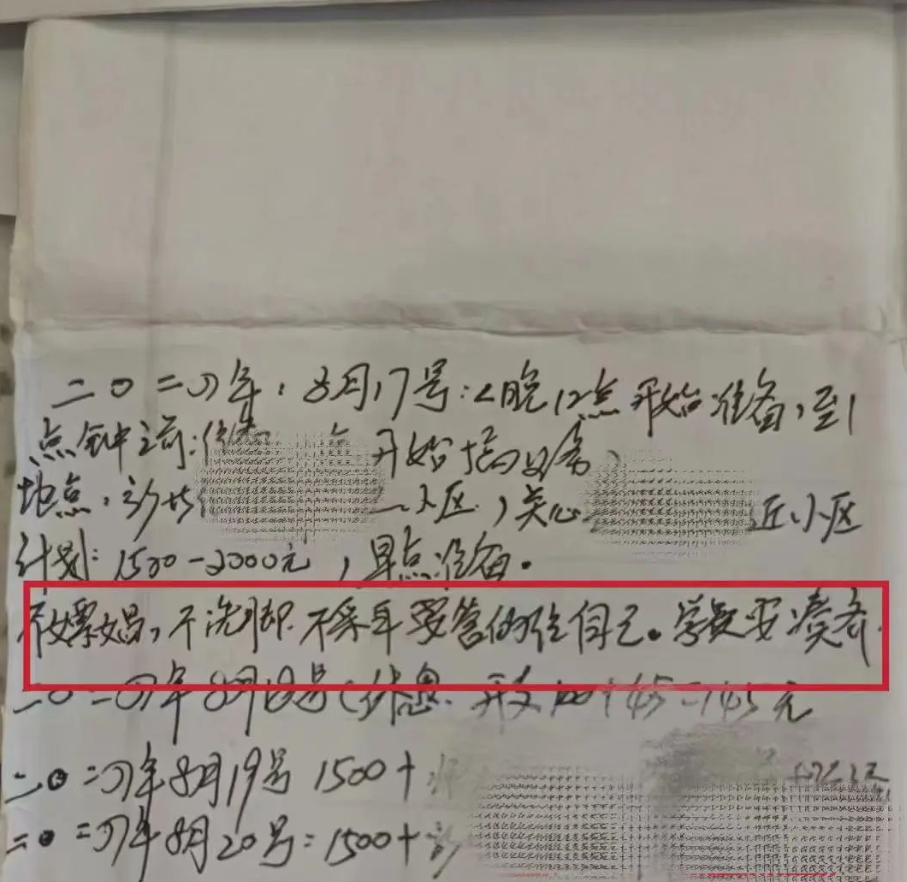 二〇二四年，8月17号：晚12点开始准备，到1
点钟之前：开始搞业务，
地点，小区，关心近小区
计划：1500-2000元，早点准备。
不嫖娼，不洗脚.不采耳要管的住自己。学费要凑齐.
二〇二四年8月18号(休息. 开支100+45=145元
二〇二四年8月19号 1500+
二〇二四年8月20号：1500+